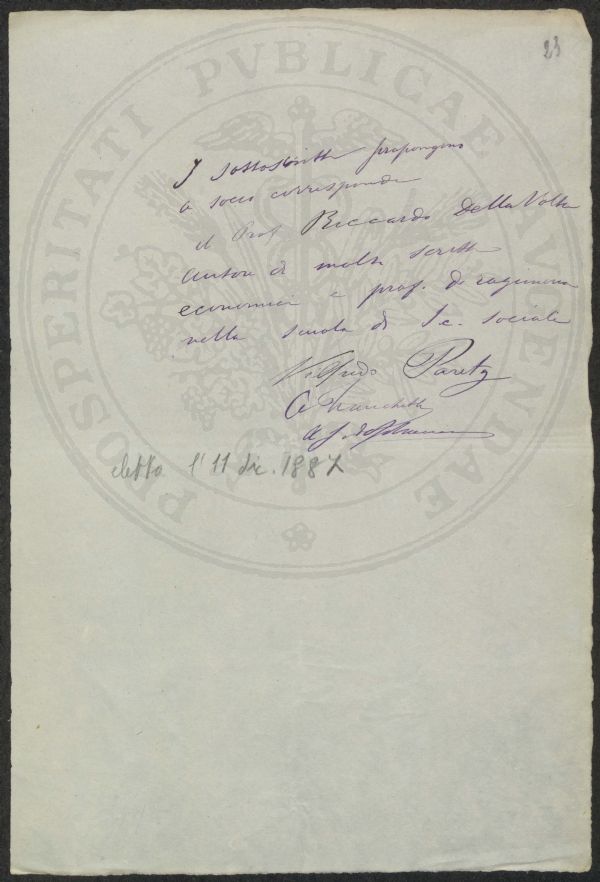 23
I sottoscritti propongono
a socio corrisponde
il Prof Riccardo Della Volta
autore di molti scritti
economici e prof. di ragioneria
nella scuola di Sc. sociali
Vilfredo Pareto
eletto l'11 dic. 1887
PROSPERITATI PVBLICAE AVGENDAE